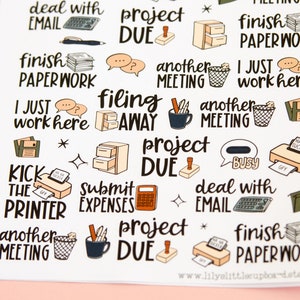 deal with
EMAIL
project
DUE
finish
PAPERWORK
finish
PAPERWORK
another
MEETING
I JUST
work here
I JUST
work here
filing
AWAY
another
MEETING
project
DUE
BUSY
KICK
THE
PRINTER
submit
EXPENSES
deal with
EMAIL
another
MEETING
project
DUE
finish
PAPERWORK